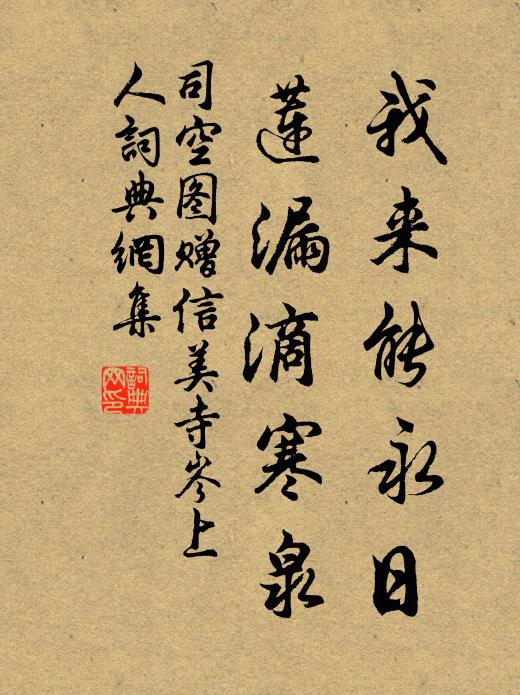 我来能永日
蓮漏滴寒泉
司空图赠信美寺岑上
人詞典網集
詞典网印